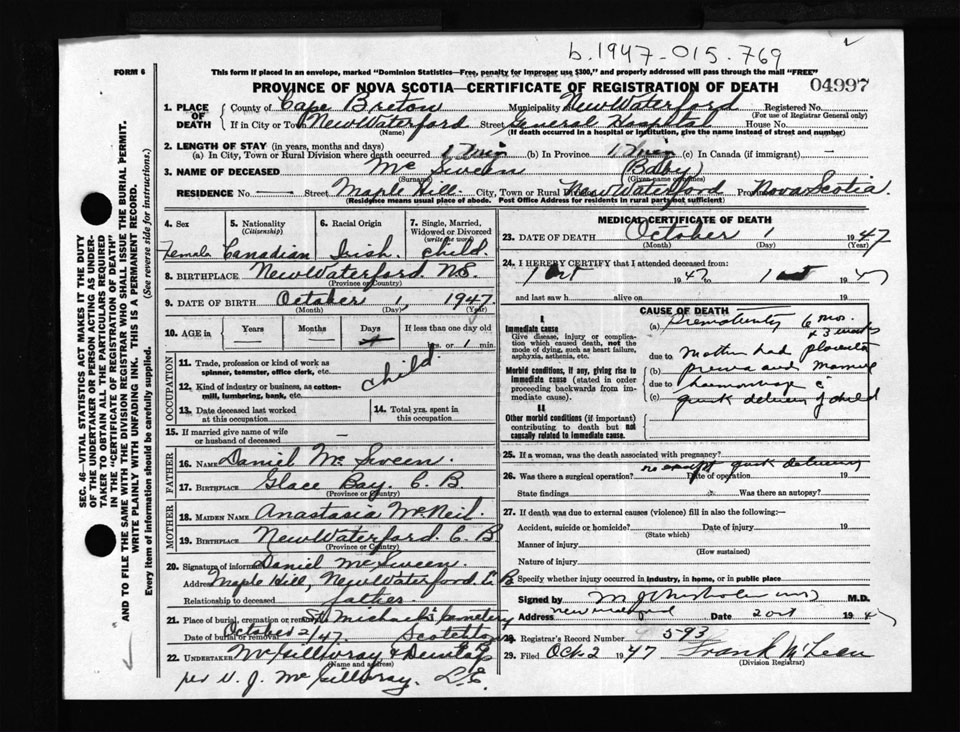 b.1947-015.769
FORM 6
This form if placed in an envelope, marked "Dominion Statistics—Free, penalty for improper use $300," and properly addressed will pass through the mail "FREE"
PROVINCE OF NOVA SCOTIA—CERTIFICATE OF REGISTRATION OF DEATH
04997
SEC. 46—VITAL STATISTICS ACT MAKES IT THE DUTY
OF THE UNDERTAKER OR PERSON ACTING AS UNDER-
TAKER TO OBTAIN ALL THE PARTICULARS REQUIRED
IN THE "CERTIFICATE OF REGISTRATION OF DEATH"
AND TO FILE THE SAME WITH THE DIVISION REGISTRAR WHO SHALL ISSUE THE BURIAL PERMIT.
WRITE PLAINLY WITH UNFADING INK. THIS IS A PERMANENT RECORD.
Every item of information should be carefully supplied. (See reverse side for instructions.)
1. PLACE OF DEATH County of Cape Breton Municipality New Waterford Registered No.
(For use of Registrar General only)
If in City or Town New Waterford Street General Hospital House No.
(Name) (If death occurred in a hospital or institution, give the name instead of street and number)
2. LENGTH OF STAY (in years, months and days)
(a) In City, Town or Rural Division where death occurred 1 min (b) In Province 1 min (c) In Canada (if immigrant) —
3. NAME OF DECEASED Mc Sween (Baby)
(Surname) (Given names)
RESIDENCE No. — Street Maple Hill City, Town or Rural Division New Waterford Province Nova Scotia
(Residence means usual place of abode. Post Office Address for residents in rural parts not sufficient)
4. Sex 5. Nationality 6. Racial Origin 7. Single, Married,
(Citizenship) Widowed or Divorced
(write the word)
Female Canadian Irish. child.
8. BIRTHPLACE New Waterford N.S.
(Province or Country)
9. DATE OF BIRTH October 1, 1947
(Month) (Day) (Year)
10. AGE in Years Months Days If less than one day old
hrs. or 1 min.
OCCUPATION
11. Trade, profession or kind of work as
spinner, teamster, office clerk, etc. child
12. Kind of industry or business, as cotton-
mill, lumbering, bank, etc.
13. Date deceased last worked
at this occupation
14. Total yrs. spent in
this occupation
15. If married give name of wife
or husband of deceased —
FATHER
16. NAME Daniel Mc Sween.
17. BIRTHPLACE Glace Bay. C. B.
(Province or Country)
MOTHER
18. MAIDEN NAME Anastasia McNeil
19. BIRTHPLACE New Waterford. C. B
(Province or Country)
20. Signature of informant Daniel McSween.
Address Maple Hill, New Waterford. C. B
Relationship to deceased father.
21. Place of burial, cremation or removal St Michael's Cemetery
Date of burial or removal October 2/47.
22. UNDERTAKER
(Name and address)
per
MEDICAL CERTIFICATE OF DEATH
23. DATE OF DEATH October 1 1947
(Month) (Day) (Year)
24. I HEREBY CERTIFY that I attended deceased from:
1 Oct 1947 1 Oct 1947
and last saw h alive on 19
CAUSE OF DEATH
I.
Immediate cause
Give disease, injury or complica-
tion which caused death, not the
mode of dying, such as heart failure,
asphyxia, asthenia, etc.
Morbid conditions, if any, giving rise to
immediate cause (stated in order
proceeding backwards from im-
mediate cause).
II
Other morbid conditions (if important)
contributing to death but not
causally related to immediate cause.
(a) Prematurity 6 mos.
+ 3 weeks
due to Mother had placenta
(b) previa and
due to haemorrhage c̄
(c) quick delivery of child
25. If a woman, was the death associated with pregnancy?
26. Was there a surgical operation? no except quick delivery Date of operation 19
State findings Was there an autopsy?
27. If death was due to external causes (violence) fill in also the following:—
Accident, suicide or homicide? Date of injury 19
(State which)
Manner of injury
(How sustained)
Nature of injury
Specify whether injury occurred in industry, in home, or in public place
Signed by M.D.
Address New Waterford Date 2 Oct 1947
28. Registrar's Record Number 593
29. Filed Oct 2 1947 Frank McLean
(Division Registrar)